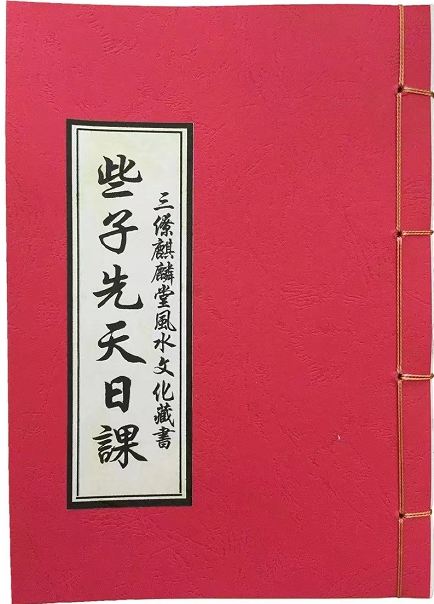 三僚麒麟堂風水文化藏書
些子先天日課